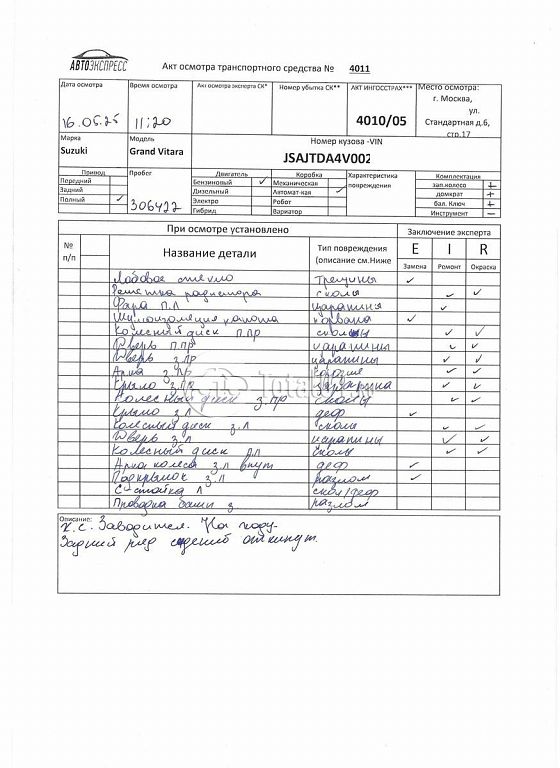 АВТОЭКСПРЕСС
Акт осмотра транспортного средства № 4011
Дата осмотра Время осмотра Акт осмотра эксперта СК* Номер убытка СК** АКТ ИНГОССТРАХ*** Место осмотра:
г. Москва,
ул.
16.05.25 11:20 4010/05 Стандартная д.6,
стр.17
Марка Модель Номер кузова -VIN
Suzuki Grand Vitara JSAJTDA4V002
Привод Пробег Двигатель Коробка Характеристика Комплектация
Передний Бензиновый ✓ Механическая повреждения зап.колесо +
Задний Дизельный Автомат-кая ✓ домкрат +
Полный ✓ 306422 Электро Робот бал. Ключ +
Гибрид Вариатор Инструмент −
При осмотре установлено Заключение эксперта
№ Название детали Тип повреждения E I R
п/п (описание см.Ниже Замена Ремонт Окраска
Лобовое стекло Трещины ✓
Решетка радиатора сколы ✓ ✓
Фара п.л царапина ✓
Шумоизоляция капота порвана ✓
Колесный диск п.пр сколы ✓ ✓
Дверь п.пр царапины ✓ ✓
Дверь з.пр царапины ✓ ✓
Арка з.пр ✓ ✓
Крыло з.пр царапина ✓ ✓
Колесный диск з.пр сколы ✓ ✓
Крыло з.л деф ✓
Колесный диск з.л сколы ✓ ✓
Дверь з.л царапины ✓ ✓
Колесный диск п.л сколы ✓ ✓
Арка колеса з.л внут деф ✓
Подкрылок з.л разлом ✓
С-стойка л скол/деф
Проводка з разлом
Описание:
Х.С. Заводится. На ходу.
Задний ряд сидений откинут.